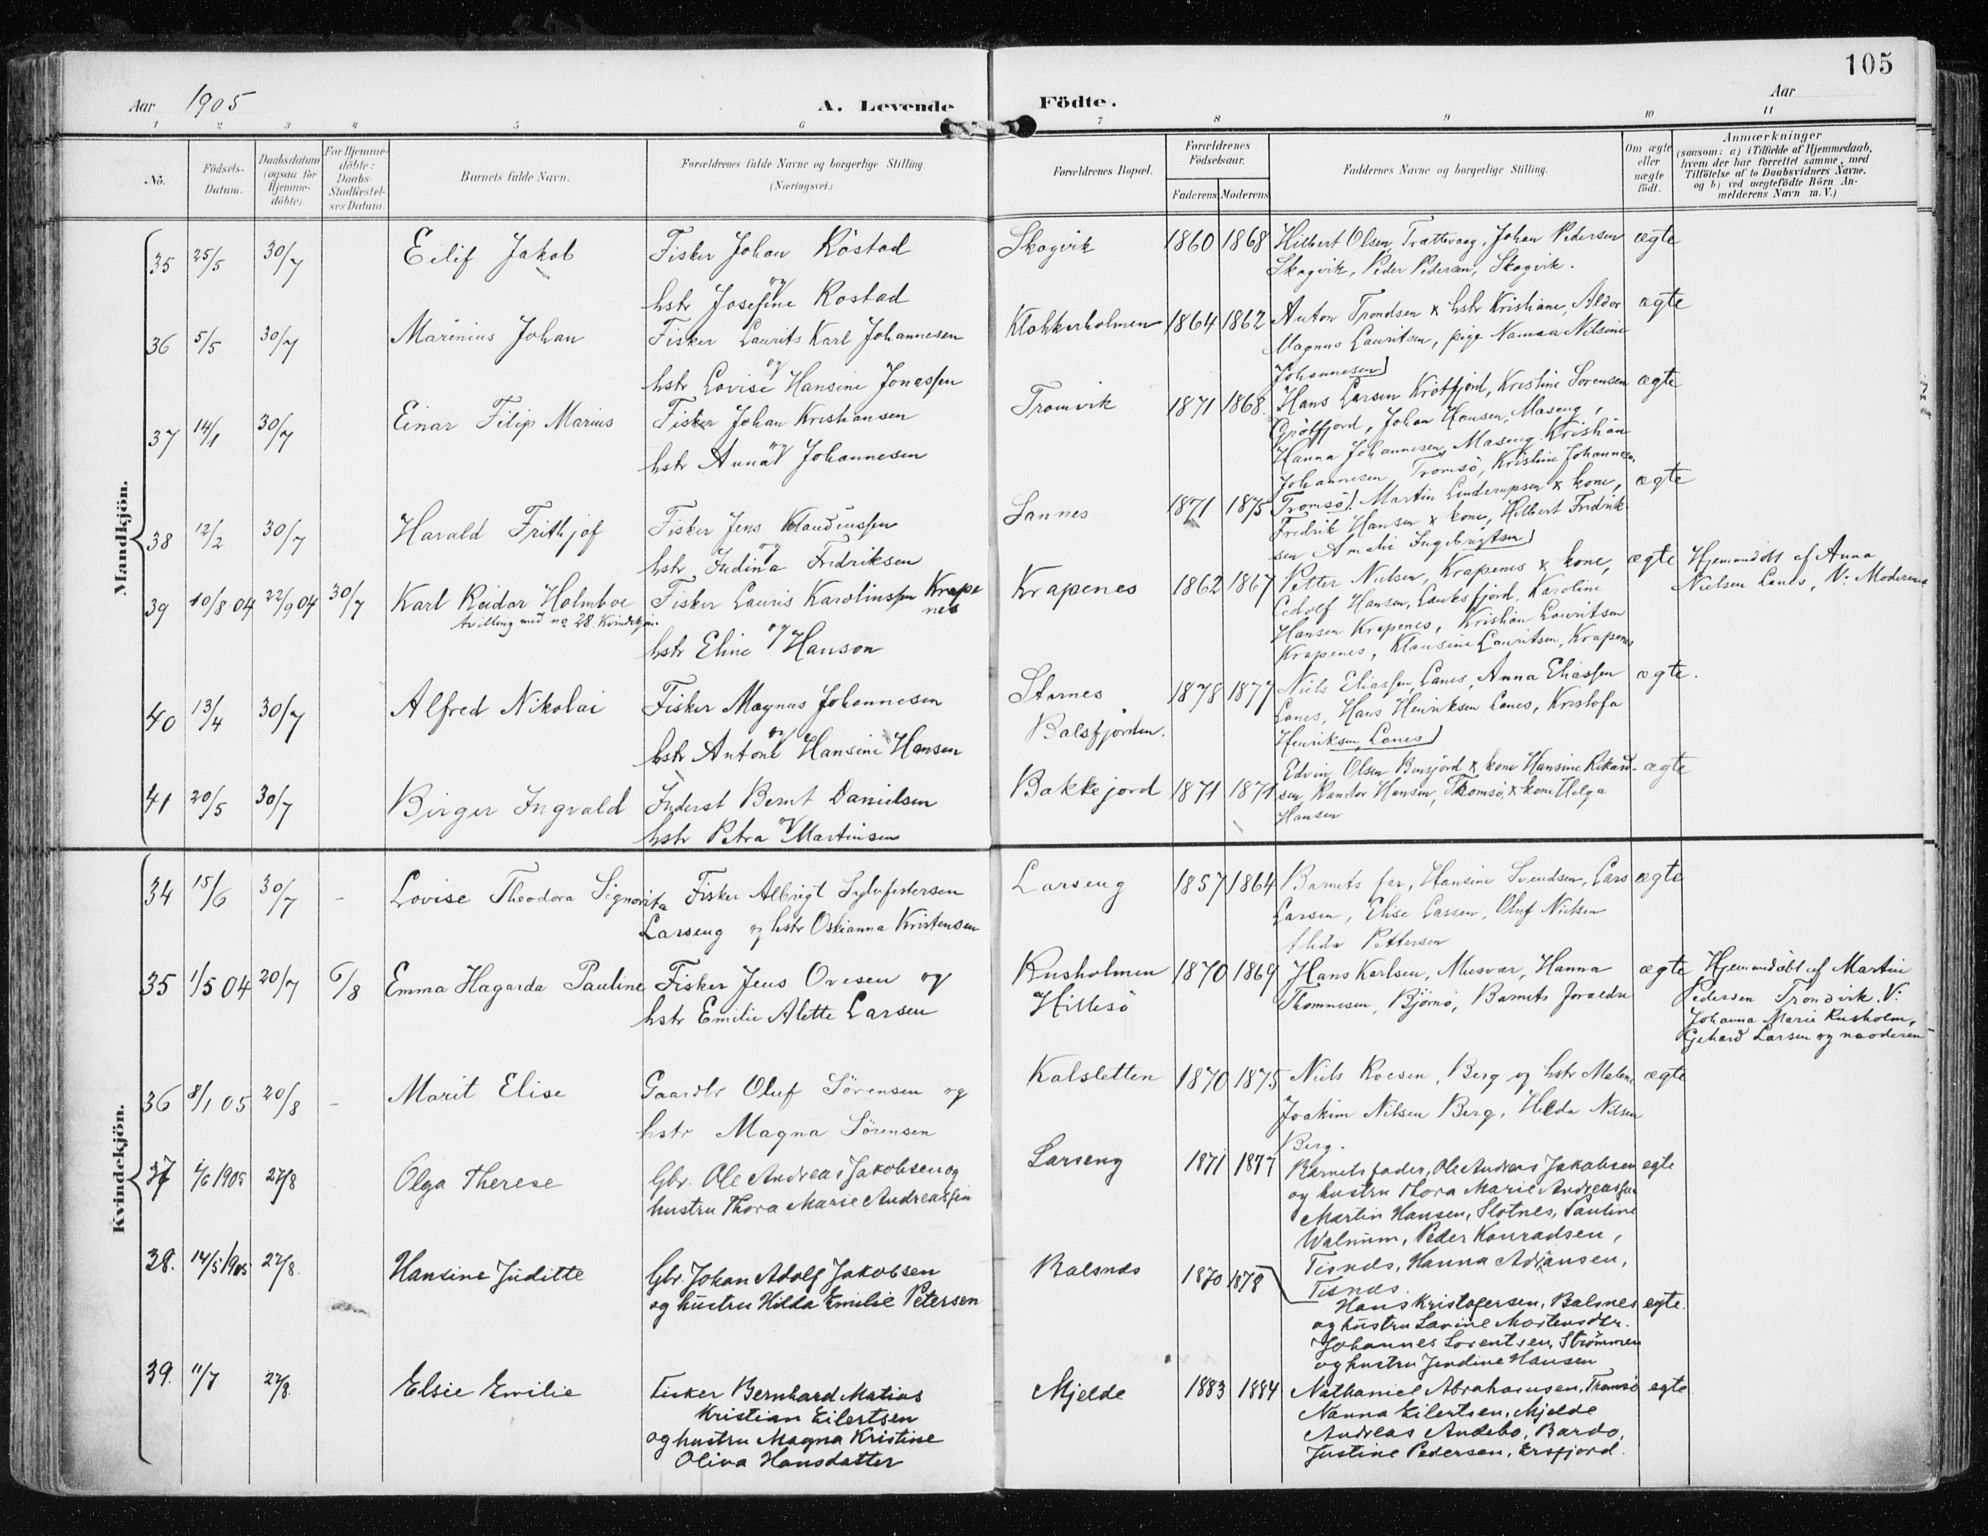 105
Aar 1905
A. Levende Födte.
Aar
1 2 3 4 5 6 7 8 9 10 11
No.
Födsels-Datum.
Daabsdatum (ogsaa for Hjemme-döbte).
For Hjemme-döbte: Daabs-Stadfæstel-ses Datum
Barnets fulde Navn.
Forældrenes fulde Navne og borgerlige Stilling. (Næringsvei.)
Forældrenes Bopæl.
Forældrenes Födselsaar.
Faderens Moderens
Faddernes Navne og borgerlige Stilling.
Om ægte eller uægte födt.
Anmærkninger
(saasom: a) i Tilfælde af Hjemmedaab,
hvem der har forrettet samme, med
Tilföielse af to Daabsvidners Navne.
og b) ved uægtefödte Börn An-
melderens Navn m. V.)
Mandkjön.
35 25/5 30/7 Eilif Jakob Fisker Johan Röstad Skogvik 1860 1868 Hilbert Olsen, Trættevaag, Johan Pedersen ægte
og
hstr Josefine Rostad
Skogvik, Peder Pedersen, Skogvik.
36 5/5 30/7 Marinius Johan Fisker Laurits Karl Johannesen Klokkerholmen 1864 1862 Anton Trondsen & hstr Kristiane, Aldor ægte
og
hstr Lovise Hansine Jonassen
Magnus Lauritsen, pige Nilsine
Johannesen
37 14/1 30/7 Einar Filip Marius Fisker Johan Kristiansen Tromvik 1871 1868 Hans Larsen Krötfjord, Kristine Sorensen ægte
og
hstr Anna Johannesen
Grötfjord, Johan Hansen, Maseng,
Hanna Johannesen, Maseng. Kristian
Johannesen Tromsö, Kristine Johannesen,
38 12/2 30/7 Harald Frithjof Fisker Jens Klaudiussen Sannes 1871 1875 Tromsö. Martin Linderupsen & kone, ægte
og
hstr Indina Fredriksen
Fredrik Hansen & kone, Hilbert Fredrik-
sen Amalie Ingebrigtsen
39 10/8 04 22/9 04 30/7 Karl Reidar Holmboe Fisker Lauris Karolinssen Krape nes Krapenes 1862 1867 Petter Nielsen, Krapenes & kone, ægte Hjemmedöbt af Anna
Tvilling med no 28. Kvindekjön.
og
hstr Eline Hanson
Ledolf Hansen, Lanksfjord, Karoline
Nielsen Lanes, V: Moderen
Hansen Krapenes, Kristian Lauritsen
Krapenes, Klausine Lauritsen, Krapenes
40 13/4 30/7 Alfred Nikolai Fisker Magnus Johannesen Stornes 1878 1877 Niels Eliassen, Lanes, Anna Eliassen ægte.
og
hstr Antone Hansine Hansen
Balsfjorden.
Lanes, Hans Henriksen Lanes, Kristofa
Henriksen, Lanes
41 20/5 30/7 Birger Ingvald Inderst Bernt Danielsen Bakkejord 1871 1871 Edvin Olsen Bensjord & kone Hansine Rikard- ægte
og
hstr Petra Martinsen
sen, Randor Hansen, Tromsö, & kone Helga
Hansen
Kvindekjön.
34 15/6 30/7 – Lovise Theodora Signorita Fisker Albrigt Sylvfestersen Larseng 1857 1864 Barnets far, Hansine Svendsen, Lars ægte
Larseng og hstr Oskianna Kristensen
Larsen, Elise Larsen, Oluf Nielsen
Pettersen
35 1/5 04 20/7 6/8 Emma Hagarda Pauline Fisker Jens Ovesen og Rusholmen 1870 1869 Hans Karlsen, Musvar, Hanna ægte Hjemmedöbt af Martin
hstr Emilie Alette Larsen Hillesö
Thommesen, Björnö, Barnets foraldre
Pedersen Trondvik. V:
Johanna Marie Rusholm,
Gehard Larsen og moderen
36 8/1 05 20/8 – Marit Elise Gaardbr Oluf Sörensen og Kalsletten 1870 1875 Niels Roesen, Berg og hstr Malene ægte
hstr Magna Sörensen
Joakim Nilsen Berg, Helda Nilsen
Berg.
37 1/6 1905 27/8 Olga Therese Gbr. Ole Andreas Jakobsen og Larseng 1871 1877 Barnets fader, Ole Andreas Jakobsen egte
hustru Thora Marie Andreassen
og hustru Thora Marie Andreassen
Martin Hansen, Slotnes, Pauline
Walnum, Peder Konradsen,
Tisnes, Hanna Adriansen,
Tisnes.
38. 14/5 1905 27/8. Hansine Juditte Gbr. Johan Adolf Jakobsen Balsnes 1870 1878 Hans Kristofersen, Balsnes egte.
og hustru Hilda Emilie Petersen
og hustru Lavine Mortensdtr.
Johannes Lorentsen, Strömmen
og hustru Jendine Hansen
39. 11/7 27/8. Elsie Emilie Fisker Bernhard Matias Mjelde 1883 1884 Nathaniel Abrahamsen, Tromsö egte.
Kristian Eilertsen
Nanna Eilertsen, Mjelde
og hustru Magna Kristine
Andreas Andebo, Bardo,
Oliva Hansdatter
Justine Pedersen, Ersfjord.